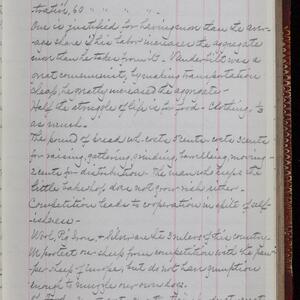 tration, 60 " " " "
One is justified for having more than the aver-
age share if his labor increases the aggregate
more than he takes from it. Vanderbilt was a
great communist, by making transportation
cheap, he vastly increased the aggregate -
Half the struggle of life is for food - Clothing, 1/3
as much -
The pound of bread wh. costs 5 cents - costs 3 cents
for raising, gathering, grinding, hauling, moving -
2 cents for distribution. The man who keeps the
little bake shop does not grow rich either -
Competition leads to cooperation in spite of self-
ishness -
Wool, Pig Iron, & Silver are the 3 rulers of this country
We protect our sheep from competition with the pau-
per sheep of Europe, but do not have gumption
enough to muzzle our own hogs.